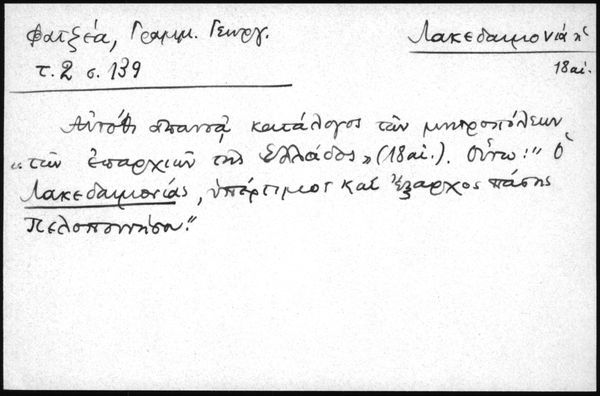 Φατζέα, Γραμμ. Γεωργ.
Λακεδαιμονία ἡ
τ. 2 σ. 139
18 αἰ.
Αὐτόθι ἀπαντᾷ κατάλογος τῶν μητροπόλεων
"τῶν ἐπαρχιῶν τῆς Ἑλλάδος» (18 αἰ.). Οὕτω: "Ὁ
Λακεδαιμονίας, ὑπέρτιμος καὶ ἔξαρχος πάσης
Πελοποννήσου."